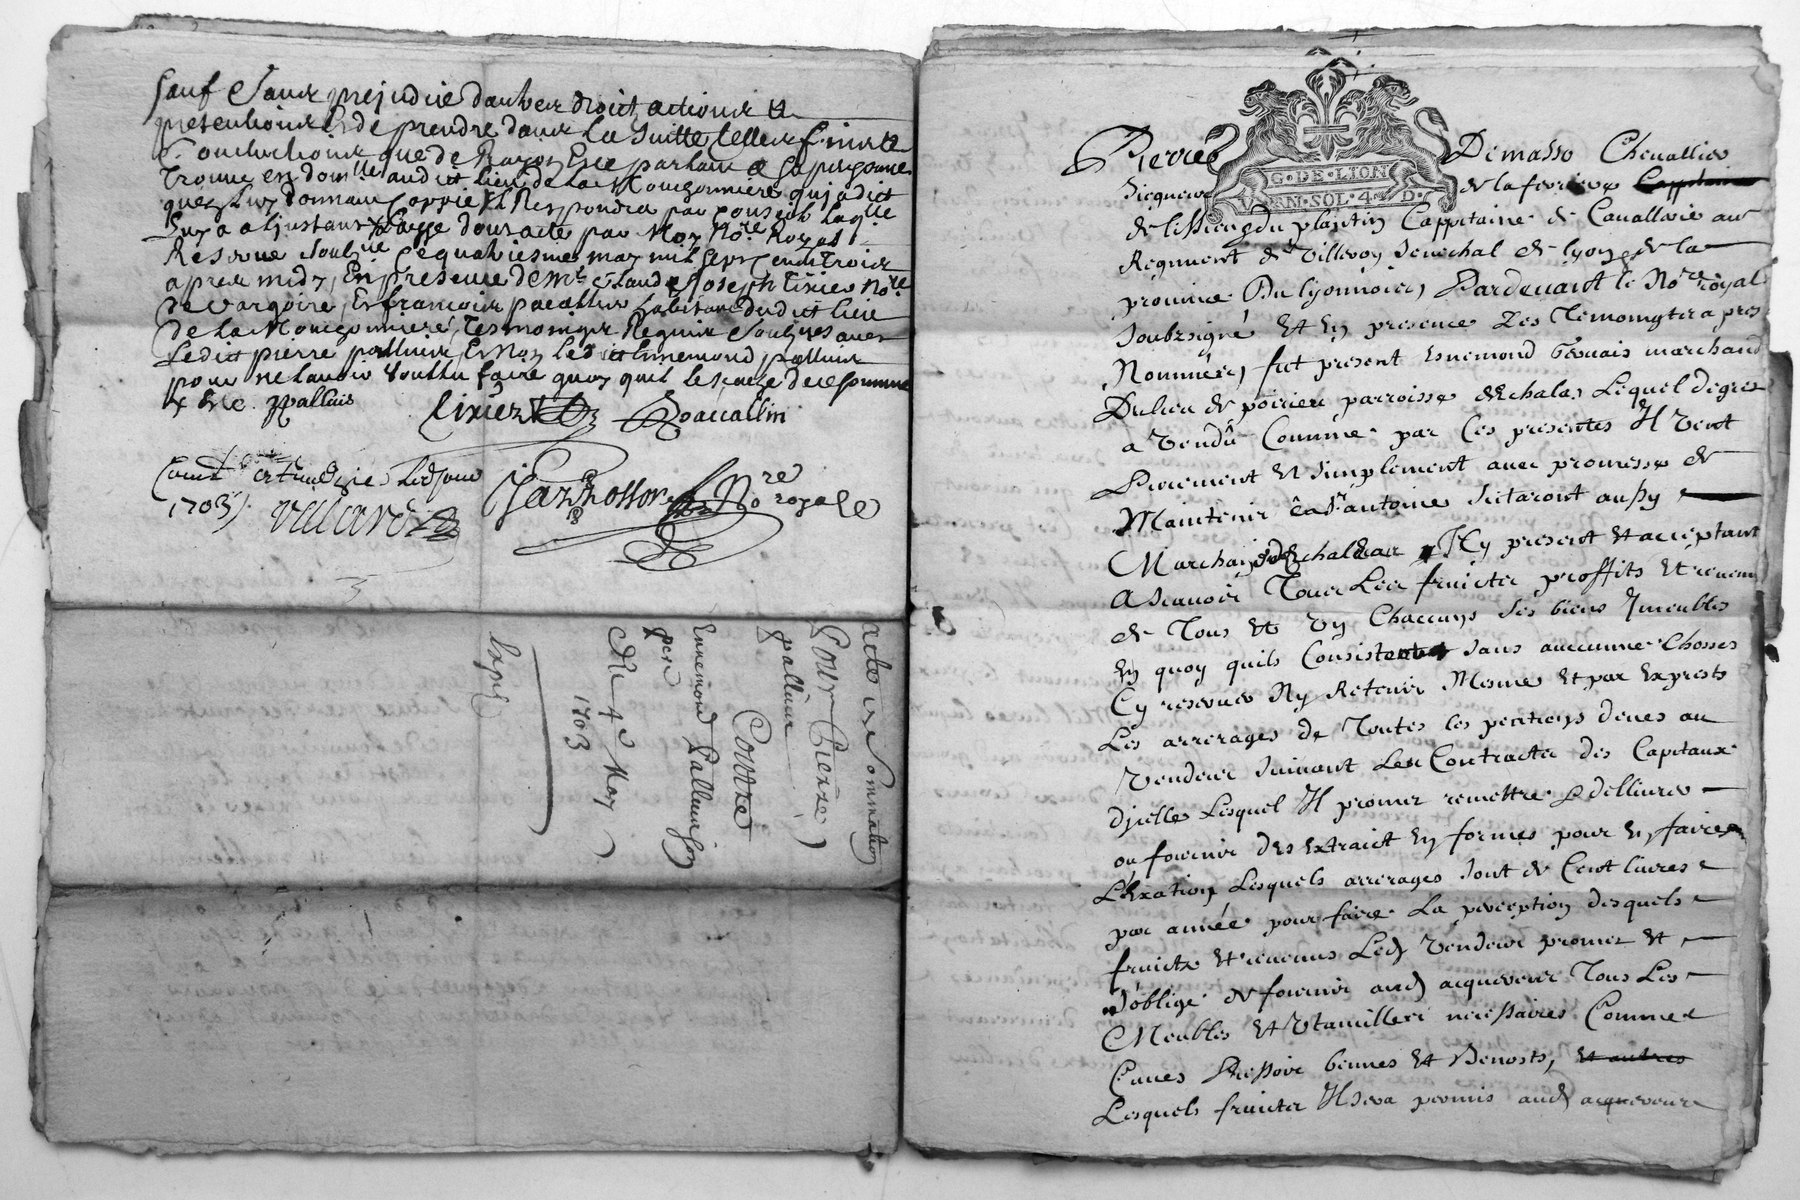 sauf & sans prejudice d'autres droits actions &
pretentions & de prendre dans la suitte telles fins &
Conclusions que de Raison Et ce parlant a sa personne
trouvé en domlle audict lieu de la Mourgonniere qui a dict
que luy donnant Coppie il Respondra par conseil laqlle
luy a a l'instant acte par Moy Nore Royal
Ressoue soubne ce quatriesme may mil sept cents trois
apres midy, En presence de Mt Claude Joseph Tixier Nore
de Et francois pacallin habitant dudict lieu
de la Mourgonniere, tesmoingts Requis soubnes avec
ledit pierre palluis, Et Non led ict Ennemond palluis
pour ne l'avoir voullu faire quoy quil le scache de ce somme
& Ene. P Palluis Tixier Pacallin
1703 Villard Nore royale
acte de Sommation
Pour Pierre
palluis
Contre
Ennemond Palluis son
pere
Du 4e May
1703
Expé
G · DE · LION
VERN · SOL · 4 D
Pierre Demasso Chevallier
Seigneur de la ferriere Cappitaine
de du plantin Cappitaine de Cavallerie au
Regiment de Villeroy Senechal de lyon & de la
province Du lyonnois, Pardevant le Nore royal
soubzsigné Et En presence Des Temoingts apres
Nommées, fut present Ennemond Gervais marchand
Du lieu de poirier parroisse dEchalas Lequel de gre
a Vendû Comme par Ces presentes Il Vent
Purement Et simplement avec promesse de
Maintenir a Sr antoine aussy
Marchand dEchallas Icy present Et acceptant
A scavoir Tous Les fruicts proffits Et revenus
de Tous Et Un Chaccuns ses biens Jmeubles
En quoy quils Consistent sans aucunne Chosses
Cy reserver Ny Retenir Mesme Et par Exprests
Les arrerages de Toutes les pentions deues au
Vendeur suivant Les Contracts des Capitaux
D'jcelles Lesquel Il promet remettre & delliurer
ou fournir des Extraict En formes pour En faire
L'Exation Lesquels arrerages sont de Cent liures
par année pour faire La perception desquels
fruicts Et revenus Led Vendeur promet Et
s'oblige de fournir aud acquereur Tous Les
Meubles Et Utancilles necessaires Comme
Cuves Pressoir bennes Et Benosts, Et autres
Lesquels fruicts Il sera permis aud acquereur